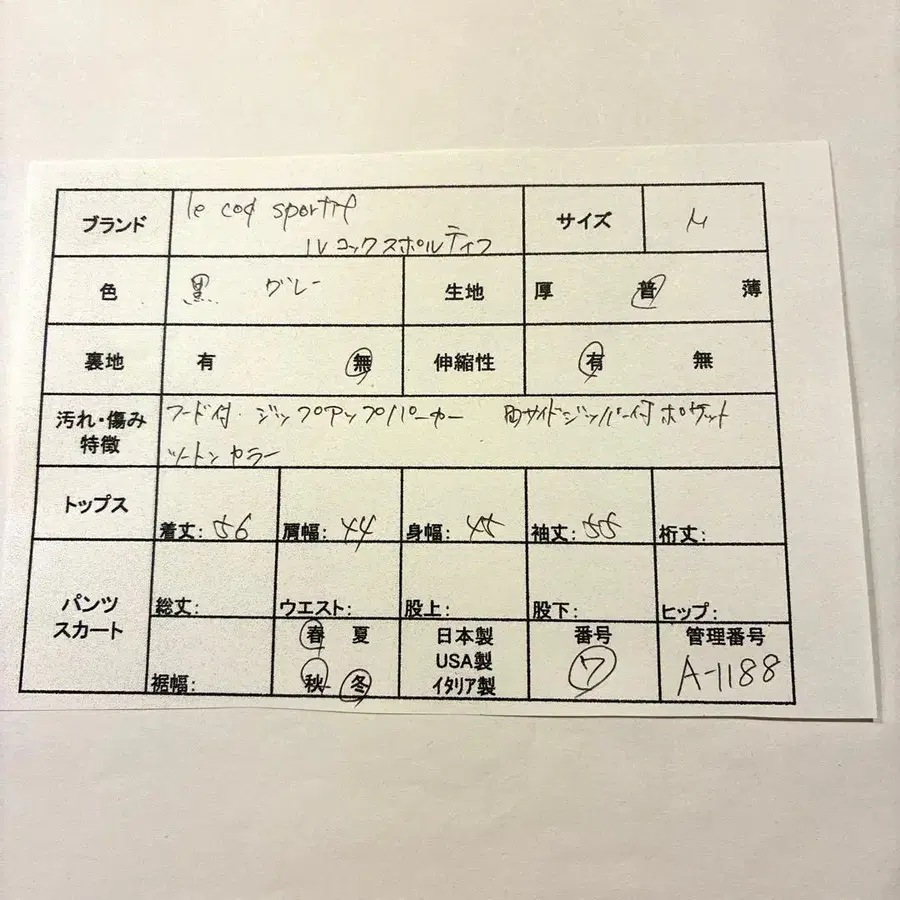 ブランド le coq sportif サイズ M
ルコックスポルティフ
色 黒 グレー 生地 厚 普 薄
裏地 有 無 伸縮性 有 無
汚れ・傷み フード付 ジップアップパーカー 両サイドジッパー付ポケット
特徴 ツートンカラー
トップス 着丈:56 肩幅:44 身幅:45 袖丈:55 桁丈:
パンツ 総丈: ウエスト: 股上: 股下: ヒップ:
スカート 春 夏 日本製 番号 管理番号
USA製 7 A-1188
裾幅: 秋 冬 イタリア製